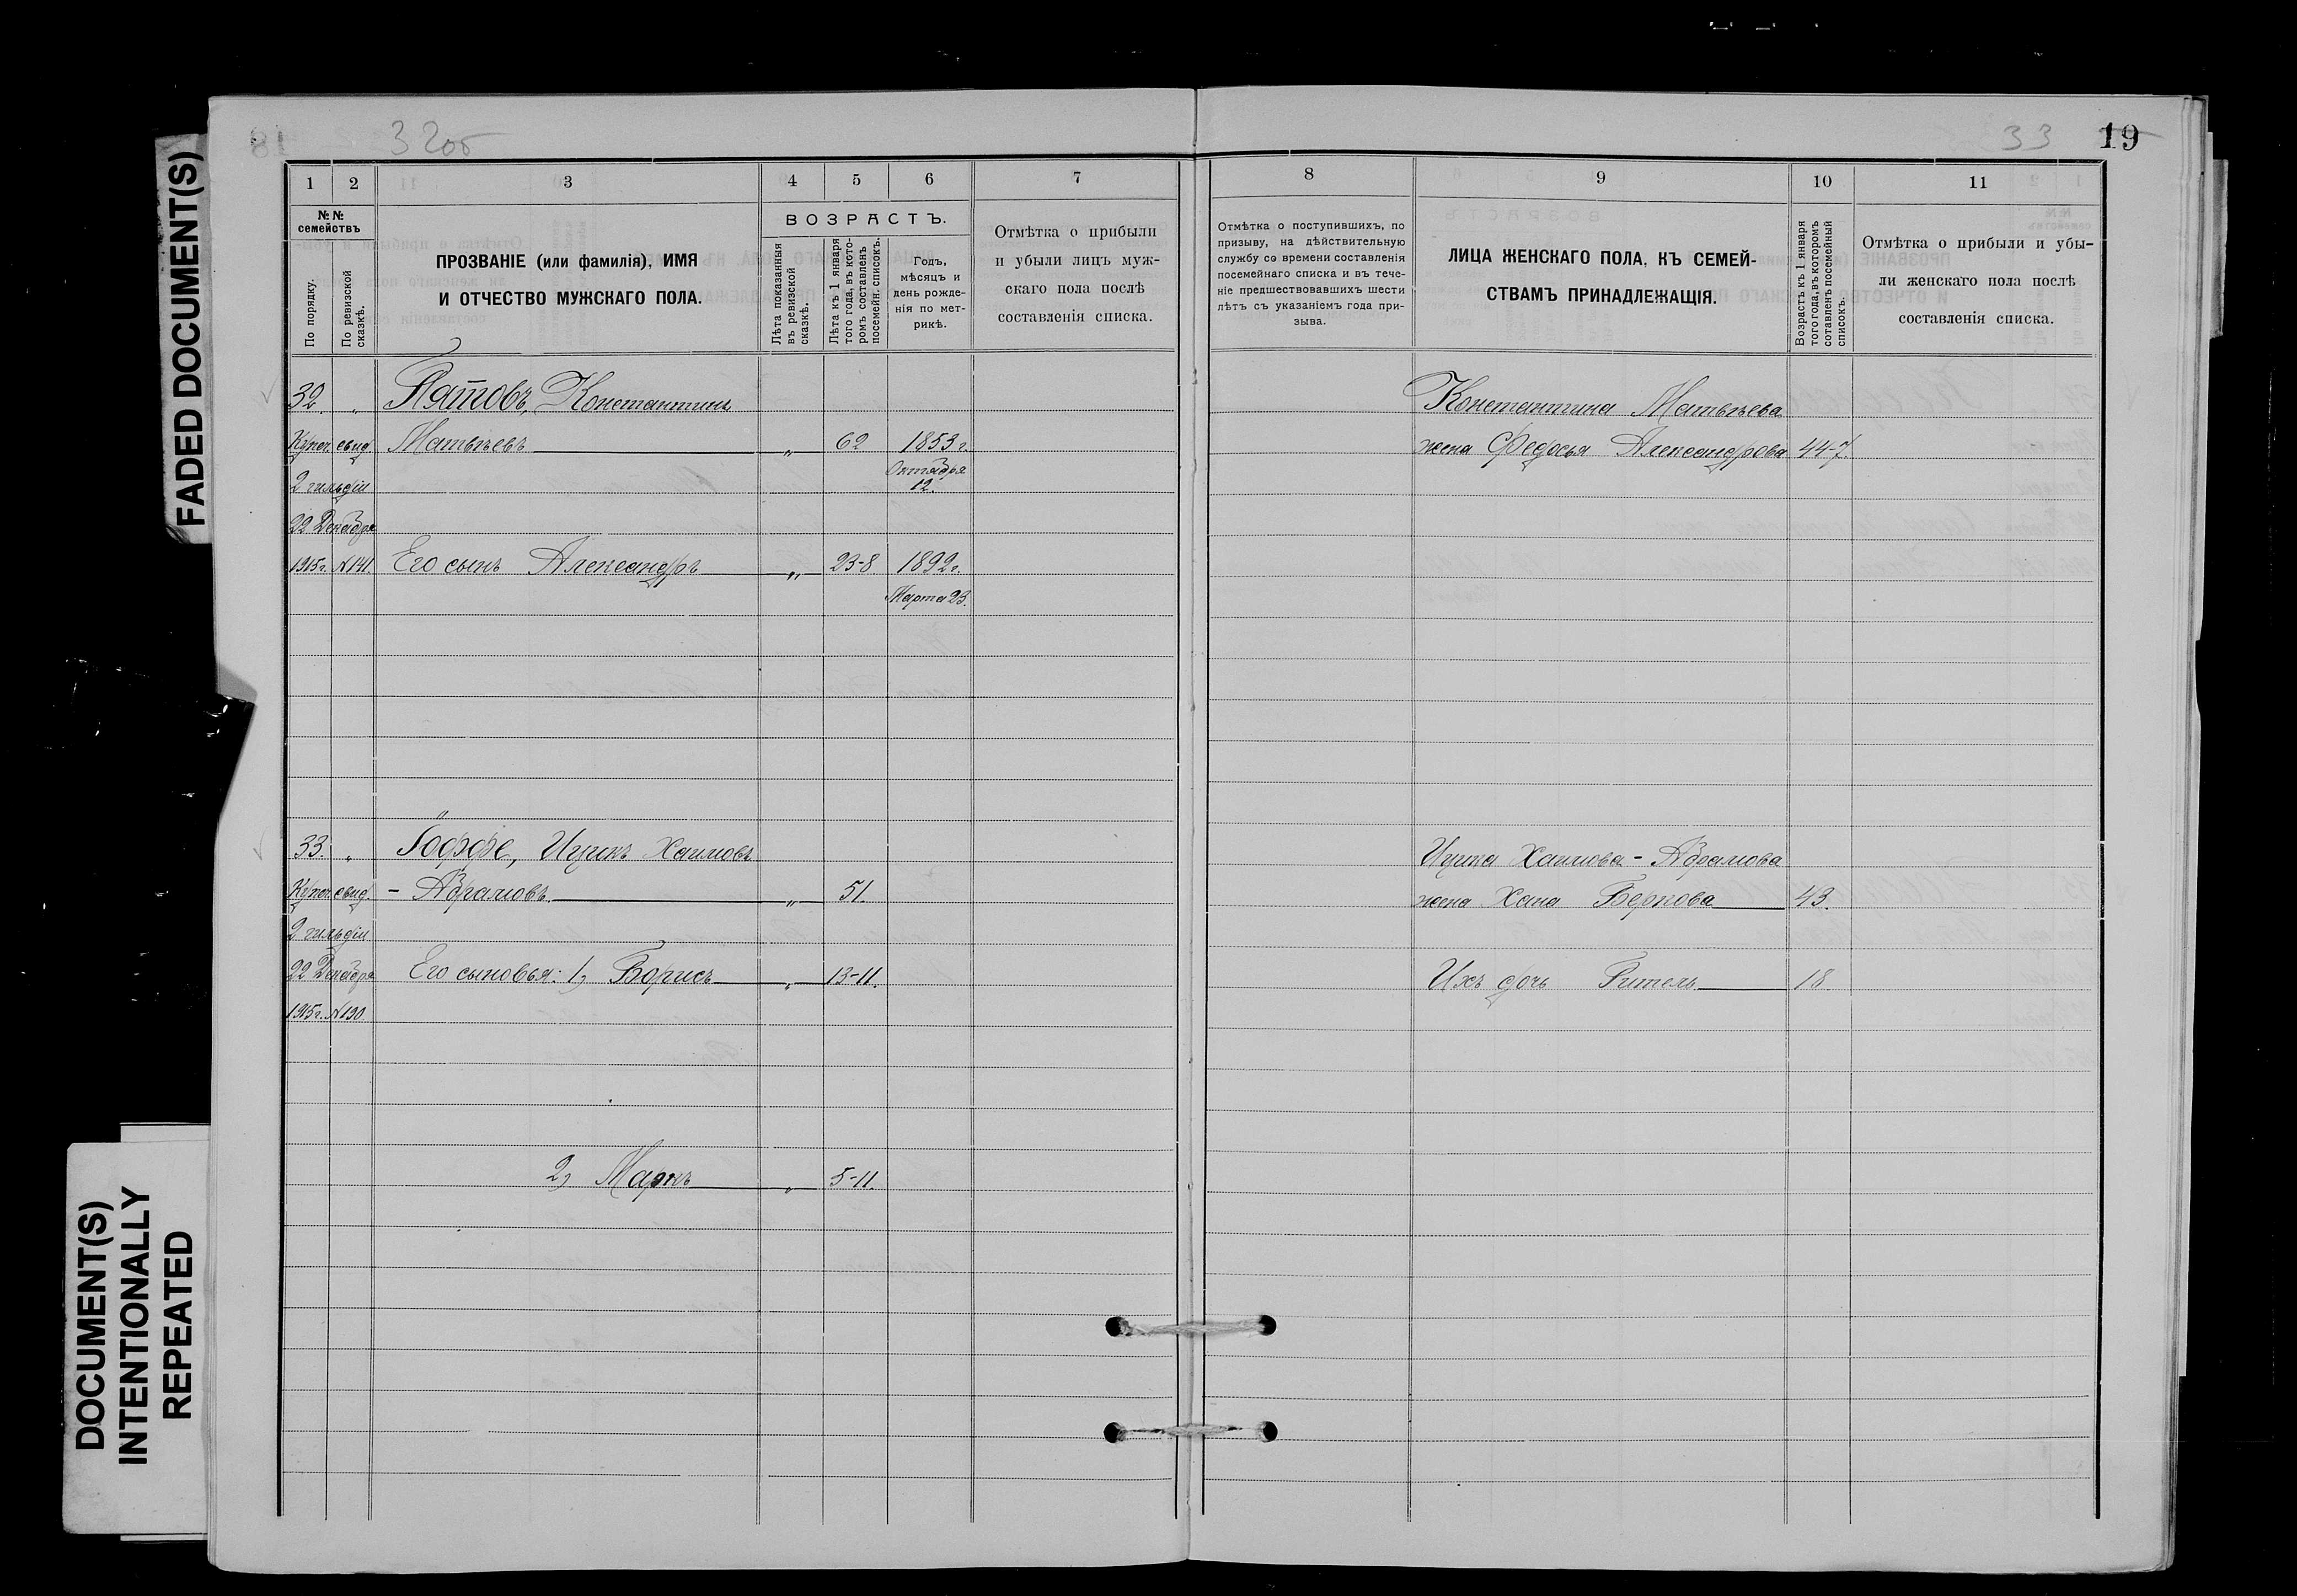 32 об
33 19
FADED DOCUMENT(S)
DOCUMENT(S)
INTENTIONALLY
REPEATED
1 2 3 4 5 6 7
№№ семействъ
По порядку.
По ревизской сказкѣ.
ПРОЗВАНІЕ (или фамилія), ИМЯ
И ОТЧЕСТВО МУЖСКАГО ПОЛА.
ВОЗРАСТЪ.
Лѣта показанныя
въ ревизской
сказкѣ.
Лѣта къ 1 января
того года, въ кото-
ромъ составленъ
посемейн. списокъ.
Годъ,
мѣсяцъ и
день рожде-
нія по мет-
рикѣ.
Отмѣтка о прибыли
и убыли лицъ муж-
скаго пола послѣ
составленія списка.
32. „ Пятовъ, Константинъ
Купеч. свид. Матвѣевъ „ 62 1853 г.
Октября
2 гильдіи 12.
22 Декабря
1915 г. № 141. Его сынъ Александръ „ 23-8 1892 г.
Марта 23.
33. „ Іоффе, Ицикъ Хаимовъ
Купеч. свид. - Абрамовъ „ 51.
2 гильдіи
22 Декабря Его сыновья: 1) Борисъ „ 13-11.
1915 г. № 190
2) Маркъ „ 5-11.
8 9 10 11
Отмѣтка о поступившихъ, по
призыву, на дѣйствительную
службу со времени составленія
посемейнаго списка и въ тече-
ніе предшествовавшихъ шести
лѣтъ съ указаніемъ года при-
зыва.
ЛИЦА ЖЕНСКАГО ПОЛА, КЪ СЕМЕЙ-
СТВАМЪ ПРИНАДЛЕЖАЩІЯ.
Возрастъ къ 1 января
того года, въ которомъ
составленъ посемейный
списокъ.
Отмѣтка о прибыли и убы-
ли женскаго пола послѣ
составленія списка.
Константина Матвѣева
жена Федосья Александрова 44-7.
Ицика Хаимова - Абрамова
жена Хана Беркова 43.
Ихъ дочь Гитель 18.